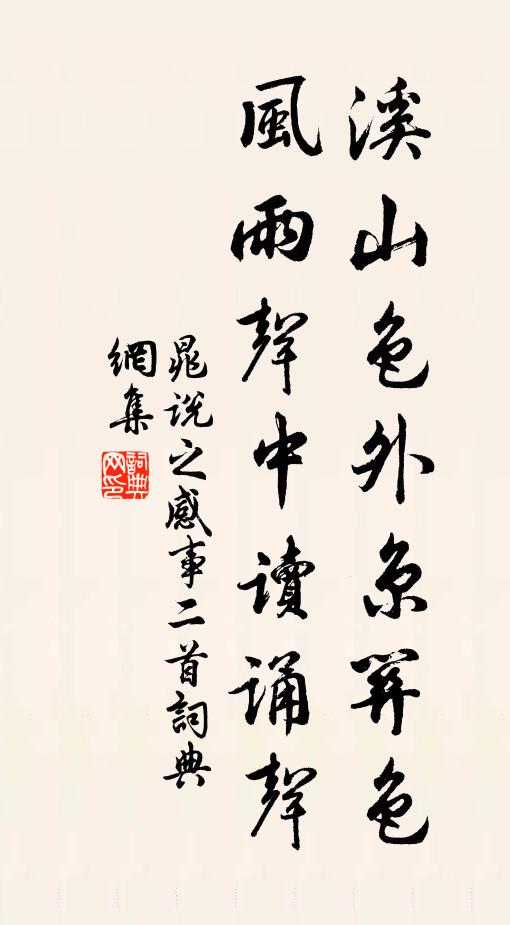 溪山色外京色
風雨聲中讀誦聲
晁說之感事二首詞典
網集
詞典
网印